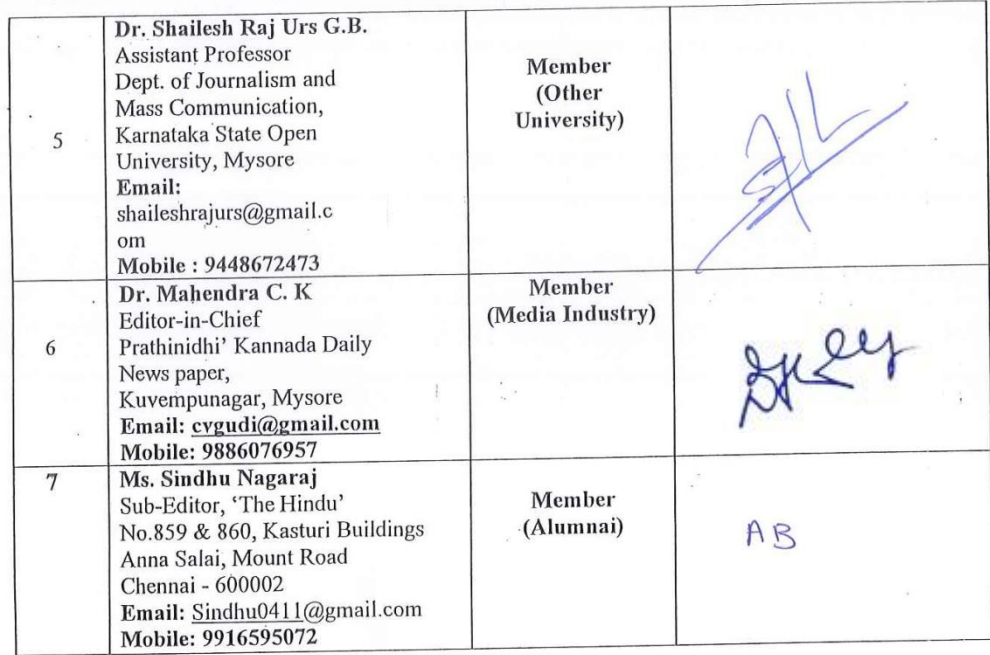 5
Dr. Shailesh Raj Urs G.B.
Assistant Professor
Dept. of Journalism and
Mass Communication,
Karnataka State Open
University, Mysore
Email:
shaileshrajurs@gmail.c
om
Mobile : 9448672473
Member
(Other
University)
6
Dr. Mahendra C. K
Editor-in-Chief
Prathinidhi’ Kannada Daily
News paper,
Kuvempunagar, Mysore
Email: cvgudi@gmail.com
Mobile: 9886076957
Member
(Media Industry)
7
Ms. Sindhu Nagaraj
Sub-Editor, ‘The Hindu’
No.859 & 860, Kasturi Buildings
Anna Salai, Mount Road
Chennai - 600002
Email: Sindhu0411@gmail.com
Mobile: 9916595072
Member
(Alumnai)
AB